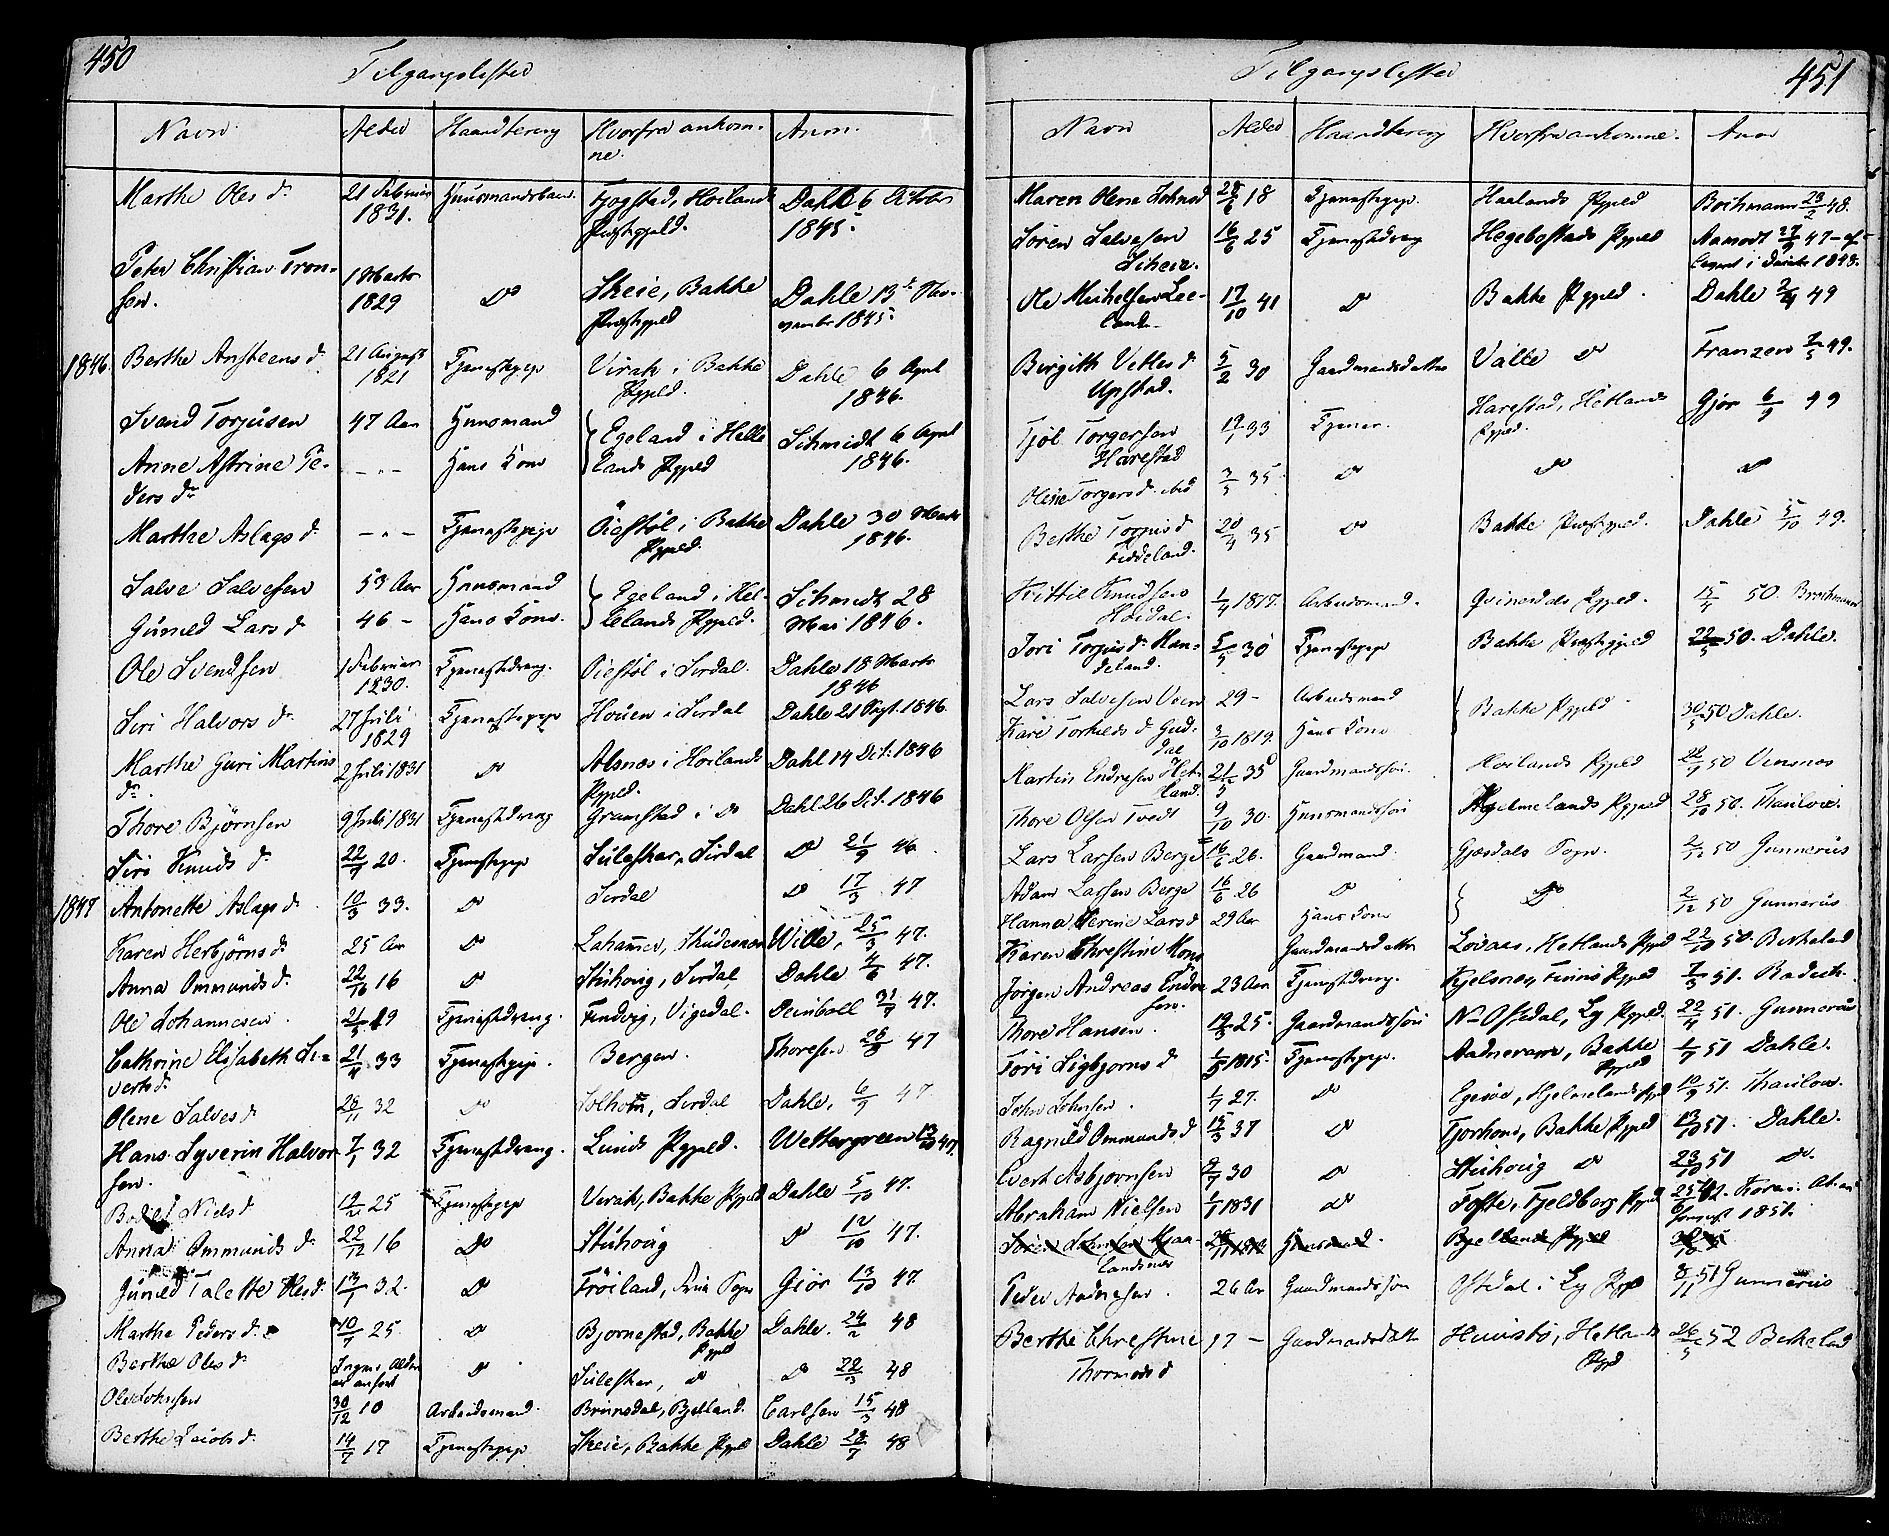 450
Tilgangslisten
Navn Alder Haandtering Hvorfra ankom-
ne. Anm.
Marthe Oles d. 21 Februar
1831. Huusmandsbarn Høilands
Præstegjeld. Dahl 6 October
1845.
Peter Christian Tron-
sen. 1 Marts
1829 do Skeie, Bakke
Præstegjeld Dahle 13 No-
vember 1845.
1846 Berthe Ansteens d. 21 August
1821 Tjenestepige Virak i Bakke
Pgjeld. Dahle 6 April
1846.
Svend Torjusen 47 Aar Huusmand Egeland i Helle-
Anne Astrine Pe-
ders dr. - " - Hans Kone lands Pgjeld Schmidt 6 April
1846.
Marthe Aslags d. - " - Tjenestepige Øiestøl i Bakke
Pgjeld. Dahle 30 Marts
1846.
Salve Salvesen 53 Aar Huusmand Egeland i Hel-
Guneld Lars d. 46 - Hans Kone. lelands Pgjeld. Schmidt 28
Mai 1846.
Ole Svendsen 1 Februar
1830. Tjenestedreng. Øiestøl i Sirdal. Dahle 18 Marts
1846
Siri Halvors dr. 27 Juli
1829 Tjenestepige Houen i Sirdal Dahle 21 1846.
Marthe Guri Martins
dr. 2 Juli 1831 do Alsnes i Høilands
Pgjeld. Dahl 14 Oct. 1846
Thore Bjørnsen 9 Juli 1831 Tjenestedreng Gramstad i do Dahl 26 Oct. 1846
Siri Knuds d. 22/7 20. Tjenestepige Suleskar, Sirdal do 21/9 46
1847 Antonette Aslags d. 10/3 33. do Sirdal do 17/3 47
Karen Herbjørns d. 25 Aar do Wille, 25/3 47.
Anna Ommunds d. 22/10 16 do Skuhovig, Sirdal Dahle 4/6 47.
Ole Johannesen 19 Tjenestedreng. Vigedal. Deinboll 31/7 47.
Cathrine Elisabeth Si-
verts d. 21/4 33 Tjenestepige. Bergen. Thoresen 47
Olene Salves d 32 do Solhom, Sirdal Dahle, 6/9 47
Hans Syverin Halvor-
sen. 7/1 32 Tjenestedreng. Lunds Pgjeld. Wettergreen 13/10 47.
Bodel Niels d 25 Tjenestepige Virak, Bakke Pgjeld Dahle 5/10 47.
Anna Ommunds d. 22/12 16 do Skuhovig do 12/10 47.
Guneld Talette Oles d. 13/1 32. do Frøiland, Gjør 13/10 47.
Marthe Peders d. 10/7 25. do Bjørnestad, Bakke
Pgjeld Dahle. 24/2 48
Berthe Oles d Ingen Alder
er anført do Suleskar, do do 22/3 48
Ole Johnsen 30/12 10 Arbeidsmand. Brunsdal, Bjelland. Carlsen 15/3 48
Berthe Jacobs d. 14/7 17 Tjenestepige Skeie, Bakke Pgjeld Dahle 28/7 48
451
Tilgangslisten
Navn Alder Haandtering Hvorfra ankomne. Anm
Maren Olene Johnsd 18 Tjenestepige. Haalands Pgjeld Bochmann 48.
Søren Salvesen
25 Tjenestedreng Hegebostads Pgjeld Aamodt 47
1848.
Ole Michelsen Lee-
land. 17/10 41 do Bakke Pgjeld. Dahle 49
Birgith Vetles d.
Upstad. 5/2 30 Gaardmandsdatter Valle do Franzen 49.
Tjøl Torgersen
Harestad 33 Tjener. Harestad, Hetlands
Pgjeld. Gjør 6/9 49
Olene Torgers d. ibid 3/5 35. do do do
Berthe Torjus d
Fiddeland. 20/4 35 do Bakke Præstegjeld. Dahle 5/10 49.
Kittil Knudsen
Høidal. 1/4 1817. Arbeidsmand. Qvinesdals Pgjeld. 15/4 50. Brochmann
Jori Torjus d. Han-
deland. 5/5 30 Tjenestepige Bakke Præstegjeld 22/5 50. Dahle.
Lars Salvesen Veen 29 - Arbeidsmand
Kari Torkilds d Gud-
dal 3/10 1819. Hans Kone Bakke Pgjeld 30/5 50 Dahle.
Martin Endresen Het-
land. 21/5 35 Gaardmandssøn. Høilands Pgjeld 50
Thore Olsen Tvedt 9/10 30. Huusmandssøn Hjelmelands Pgjeld 28/10 50. Thaulow.
Lars Larsen Berge 16/6 26. Gaardmand. Gjæsdals Sogn. 2/12 50 Gunnerius
Adam Larsen Berge 16/6 26 do do 2/12 50 Gunnerius
Hanna Serine Lars d 29 Aar Hans Kone
Karen Christine Mons Gaardmandsdatter Løvaas, Hetlands Pgjeld 22/10 50. Berkeland
Jørgen Andreas Endre-
sen. 23 Aar Tjenestedreng. Pgjeld 7/3 51.
Thore Hansen. 25. Gaardmandssøn N. Ofstedal, Ly Pgjeld. 22/4 51. Gunnerius
Tori Sigbjørns d 1815. Tjenestepige. Bakke
Pgjeld 1/7 51 Dahle.
John Johnsen. 1/7 27. do Hjelmelands Pgjeld 10/9 51. Thaulow.
Ragnild Ommunds d 15/3 37 do Tjorhom, Bakke Pgjeld 13/10 51. Dahle.
Evert Asbjørnsen 9/7 30 do Skuhovig do 23/10 51 do.
Abraham Nielsen 1/1 1831 do Tofte, Fjeldberg Pgjeld 25/6 42.
1851.
Søren Johnsen
Huusmand. Bjellands Pgjeld
Peder Andresen. 26 Aar Gaardmandssøn Ofstedal i Ly Pgjd 8/11 51 Gunnerius
Berthe Christine
Thormods d 17 - Gaardmandsdatter Huusstø, Hetlands
Pgjd 26/5 52 Berkeland